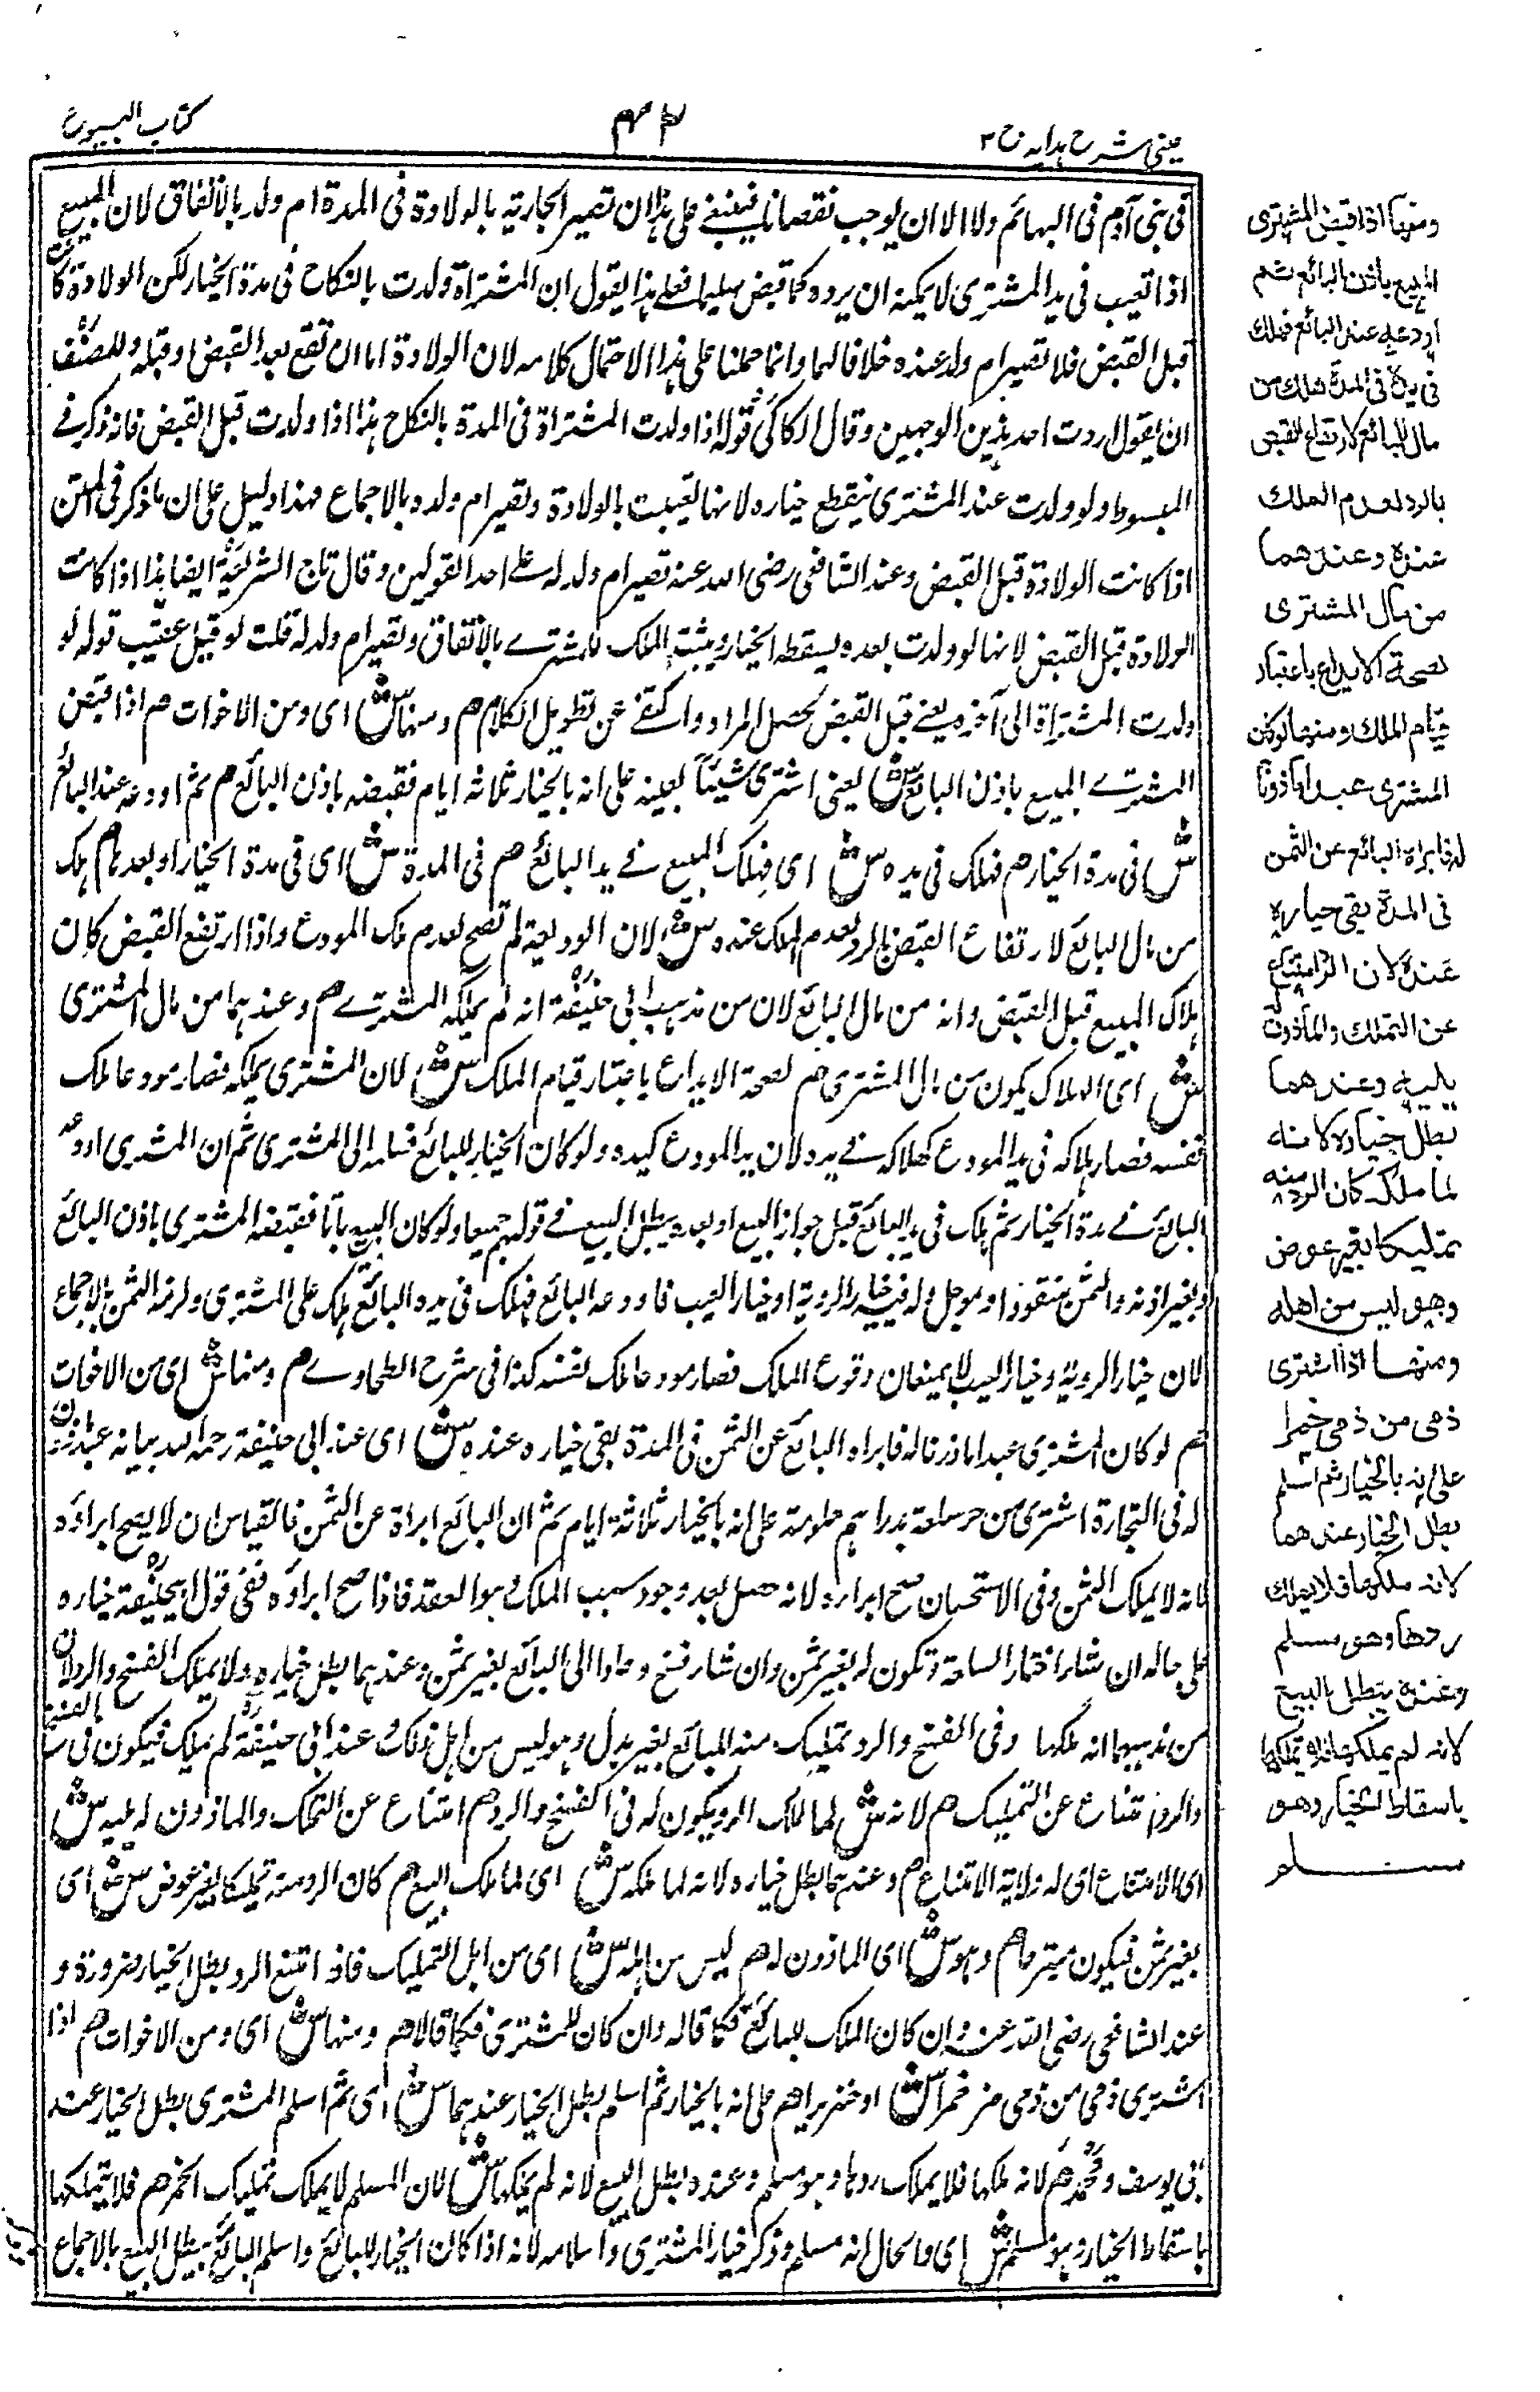 عینی شرح ہدایہ ج ٣
كتاب البيوع
فی بنی آدم فی البهائم ولا الا ان یوجب نقصانا فینبغی علی ہذا ان تصیر الجاریة بالولادة فی المدة ام ولد بالاتفاق لان المبیع
اذا تعیب فی ید المشتری لا یمکنه ان یرده کما قبض سلیما فعلی ہذا یقول ان المشتراة ولدت بالنکاح فی مدة الخیار لکن الولادة کانت
قبل القبض فلا تصیر ام ولد عنده خلافا لهما وانما حملنا علی ہذا الاحتمال کلامه لان الولادة اما ان تقع بعد القبض او قبله وللمصنف
ان یقول اردت احد ہذین الوجهین وقال الکاکی قوله اذا ولدت المشتراة فی المدة بالنکاح ہذا اذا ولدت قبل القبض فانه ذکر فے
المبسوط ولو ولدت عند المشتری ینقطع خیاره لانها تعیبت بالولادة وتصیر ام ولده بالاجماع فهذا دلیل علی ان ما ذکر فی المتن
اذا کانت الولادة قبل القبض وعند الشافعی رضی الله عنه تصیر ام ولد له علے احد القولین وقال تاج الشریعة ایضا ہذا اذا کانت
الولادة قبل القبض لانها لو ولدت بعده یسقط الخیار ویثبت الملک للمشترے بالاتفاق وتصیر ام ولد له قلت لو قیل عقیب قوله لو
ولدت المشتراة الی آخره یعنے قبل القبض لحصل المراد واکتفے عن تطویل الکلام م ومنها ش ای ومن الاخوات م اذا قبض
المشترے المبیع باذن البائع ش یعنی اشتری شیئا بعینه علی انه بالخیار ثلاثة ایام فقبضه باذن البائع م ثم اودعه عند البائع
ش فی مدة الخیار م فهلک فی یده ش ای فهلک المبیع فے ید البائع م فی المدة ش ای فی مدة الخیار او بعدها م هلک
من مال البائع لارتفاع القبض بالرد لعدم الملک عنده ش لان الودیعة لم تصح لعدم ملک المودع واذا ارتفع القبض کان
ہلاک المبیع قبل القبض وانه من مال البائع لان من مذہب ابی حنیفة انه لم یملکه المشترے م وعندہما من مال المشتری
ش ای الهلاک یکون من مال المشتری م لصحة الایداع باعتبار قیام الملک ش لان المشتری یملکه فصار مودعا ملک
نفسه فصار ہلاکه فی ید المودع کهلاکه فے یده لان ید المودع کیده ولو کان الخیار للبائع فسلمه الی المشتری ثم ان المشتری اودعه
البائع فے مدة الخیار ثم ہلک فی ید البائع قبل جواز البیع او بعده یبطل البیع فے قولهم جمیعا ولو کان البیع باتا فقبضه المشتری باذن البائع
او بغیر اذنه والثمن منقود او موجل وله فیه خیار الرویة او خیار العیب فاودعه البائع فهلک فی یده البائع ہلک علی المشتری ولزمه الثمن بالاجماع
لان خیار الرویة وخیار العیب لا یمنعان وقوع الملک فصار مودعا ملک نفسه کذا فی شرح الطحاوے م ومنها ش ای من الاخوات
م لو کان المشتری عبدا ماذونا له فابراه البائع عن الثمن فی المدة بقی خیاره عنده ش ای عند ابی حنیفة رحمه الله بیانه عبد ماذون
له فی التجارة اشتری من حر سلعة بدراہم معلومة علی انه بالخیار ثلاثة ایام ثم ان البائع ابراه عن الثمن فالقیاس ان لا یصح ابراؤه
لانه لا یملک الثمن وفی الاستحسان صح ابراره لانه حصل بعد وجود سبب الملک وہو العقد فاذا صح ابراؤه ففی قول ابی حنیفة خیاره
علی حاله ان شاء اختار السلعة وتکون له بغیر ثمن وان شاء فسخ وعادا الی البائع بغیر ثمن وعندہما بطل خیاره ولا یملک الفسخ والرد لان
من مذہبهما انه ملکها وفی الفسخ والرد تملیک منه للبائع بغیر بدل وہو لیس من اہل ذلک وعند ابی حنیفة لم یملک فیکون فی الفسخ
والرد امتناع عن التملیک م لانه ش لما ملک الرد یکون له فی الفسخ والرد م امتناع عن التملک والماذون له یلیه ش
ای الامتناع ای له ولایة الامتناع م وعندہما بطل خیاره لانه لما ملکه ش ای لما ملک المبیع م کان الرد منه تملیکا بغیر عوض ش ای
بغیر ثمن فیکون متبرعا م وہو ش ای الماذون له م لیس من اہله ش ای من اہل التملیک فاذا امتنع الرد بطل الخیار ضرورة و
عند الشافعی رضی الله عنه وان کان الملک للبائع فکما قاله وان کان للمشتری فکما قالا م ومنها ش ای ومن الاخوات م اذا
اشتری ذمی من ذمی خمرا ش او خنزیرا م علی انه بالخیار ثم اسلم بطل الخیار عندہما ش ای ثم اسلم المشتری بطل الخیار عند
ابی یوسف ومحمد م لانه ملکها فلا یملک ردها وہو مسلم وعنده بطل البیع لانه لم یملکها ش لان المسلم لا یملک تملیک الخمر م فلا یتملکها
باسقاط الخیار وہو مسلم ش ای والحال انه مسلم وذکر خیار المشتری واسلامه لانه اذا کان الخیار للبائع واسلم البائع یبطل البیع بالاجماع
ومنها اذا قبض المشتری
المبیع باذن البائع ثم
اودعه عند البائع فهلک
فی یده فی المدة هلک من
مال البائع لارتفاع القبض
بالرد لعدم الملک
عنده وعندهما
من مال المشتری
لصحة الایداع باعتبار
قیام الملک ومنها لو کان
المشتری عبدا ماذونا
له فابراه البائع عن الثمن
فی المدة بقی خیاره
عنده لان الرد امتناع
عن التملک والماذون له
یلیه وعندهما
بطل خیاره لانه
لما ملکه کان الرد منه
تملیکا بغیر عوض
وهو لیس من اهله
ومنها اذا اشتری
ذمی من ذمی خمرا
علی انه بالخیار ثم اسلم
بطل الخیار عندهما
لانه ملکها فلا یملک
ردها وهو مسلم
وعنده یبطل البیع
لانه لم یملکها فلا یتملکها
باسقاط الخیار وهو
مسلم